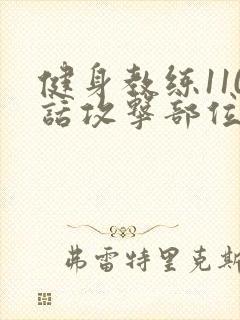 健身教练110
話攻撃部位
弗雷特里克斯